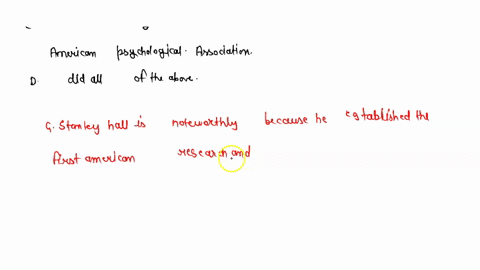 American psychological. Association.
D. did all of the above.
G. Stanley hall is noteworthly because he established the
first american research and